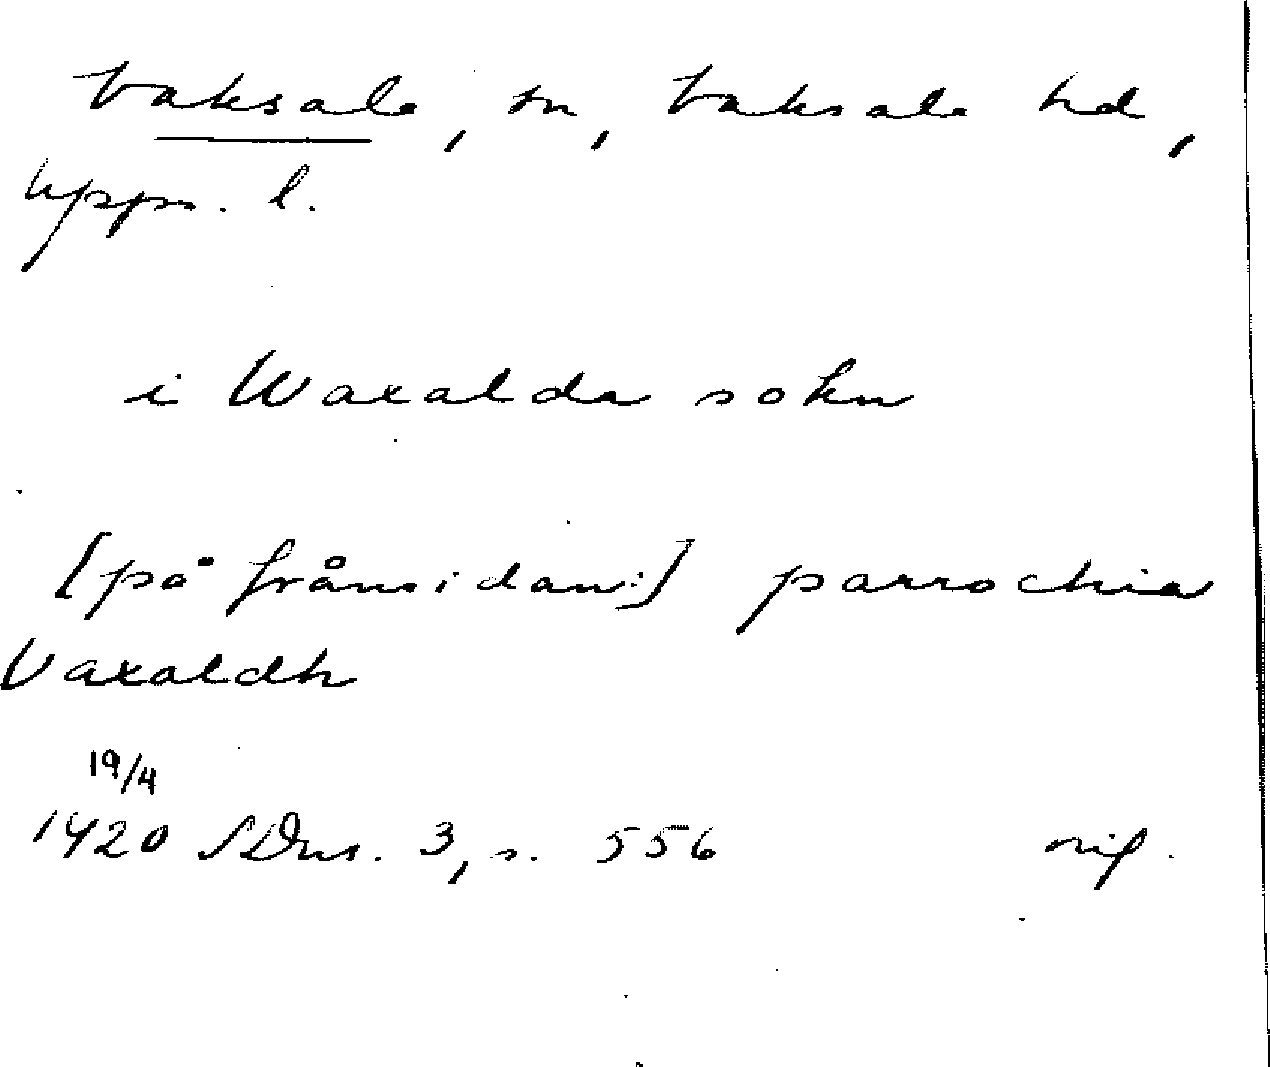 Vaksala, sn, Vaksala hd,
Upps. l.
i Waxalda sokn
[på frånsidan:] parrochia
Vaxaldh
19/4
1420 SDns. 3, s. 556 orig.